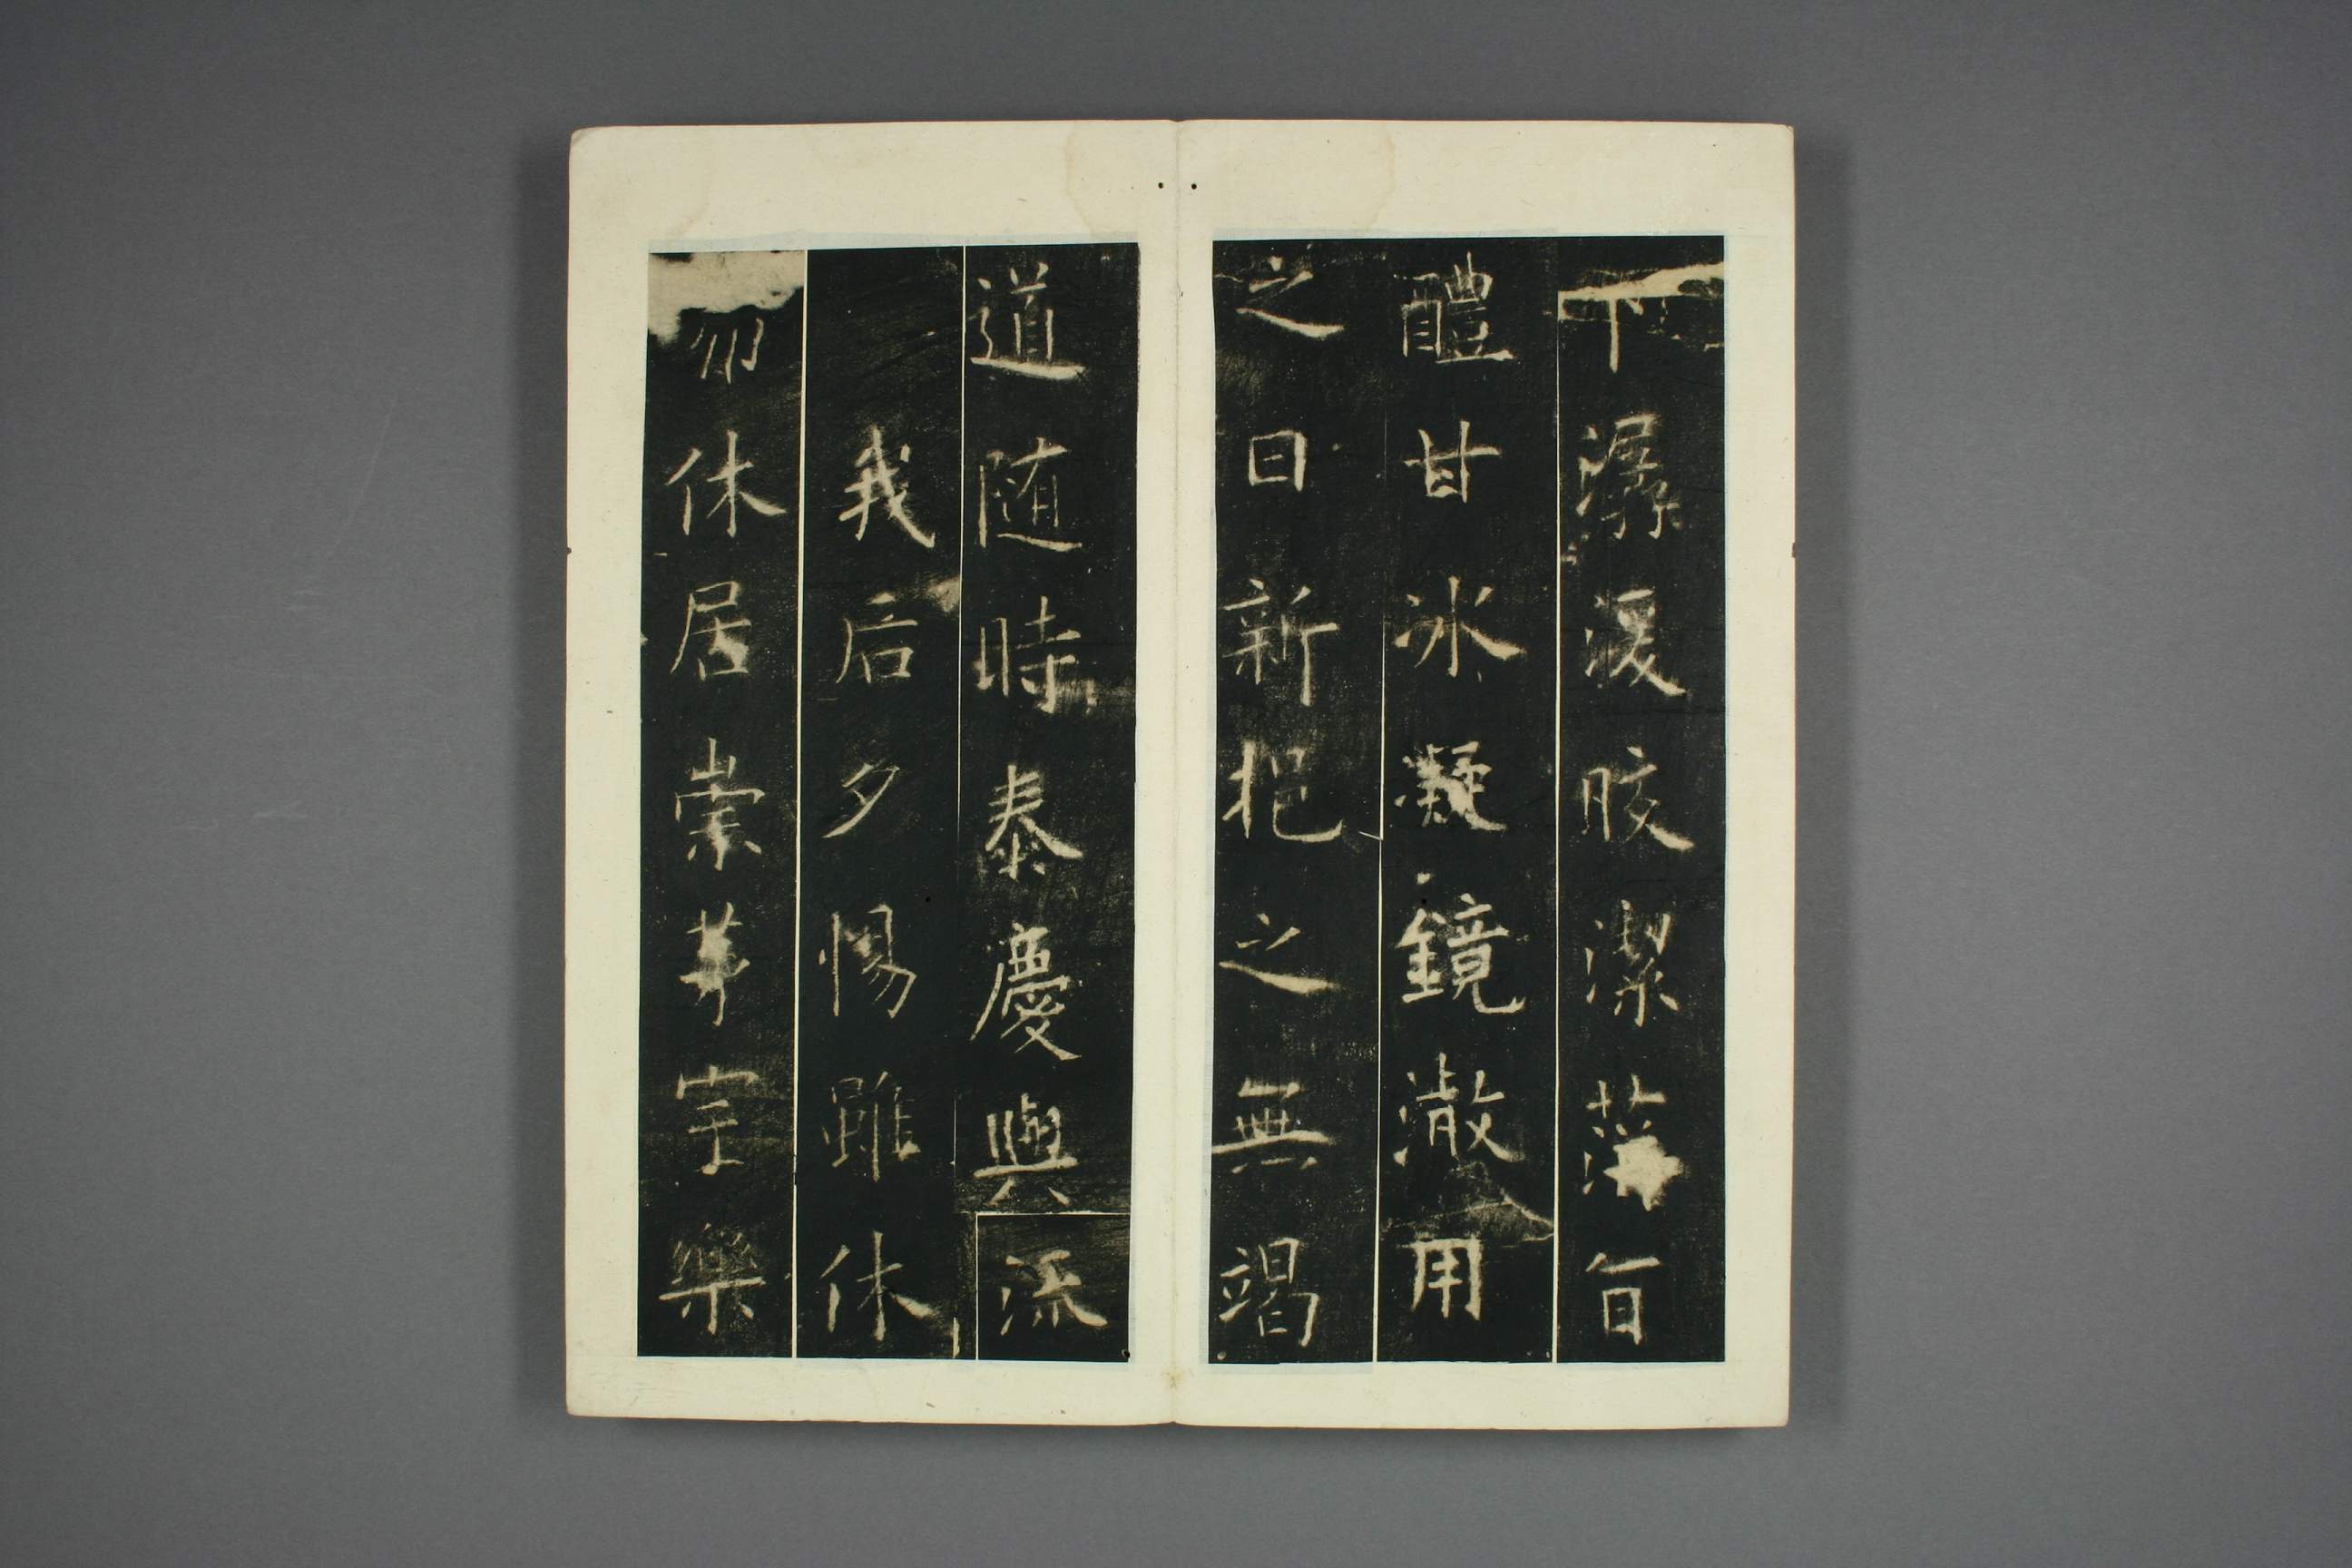 下潺湲晈潔萍旨
醴甘冰凝鏡澈用
之日新挹之無竭
道随時泰慶與流
我后夕惕雖休
弗休居崇茅宇樂